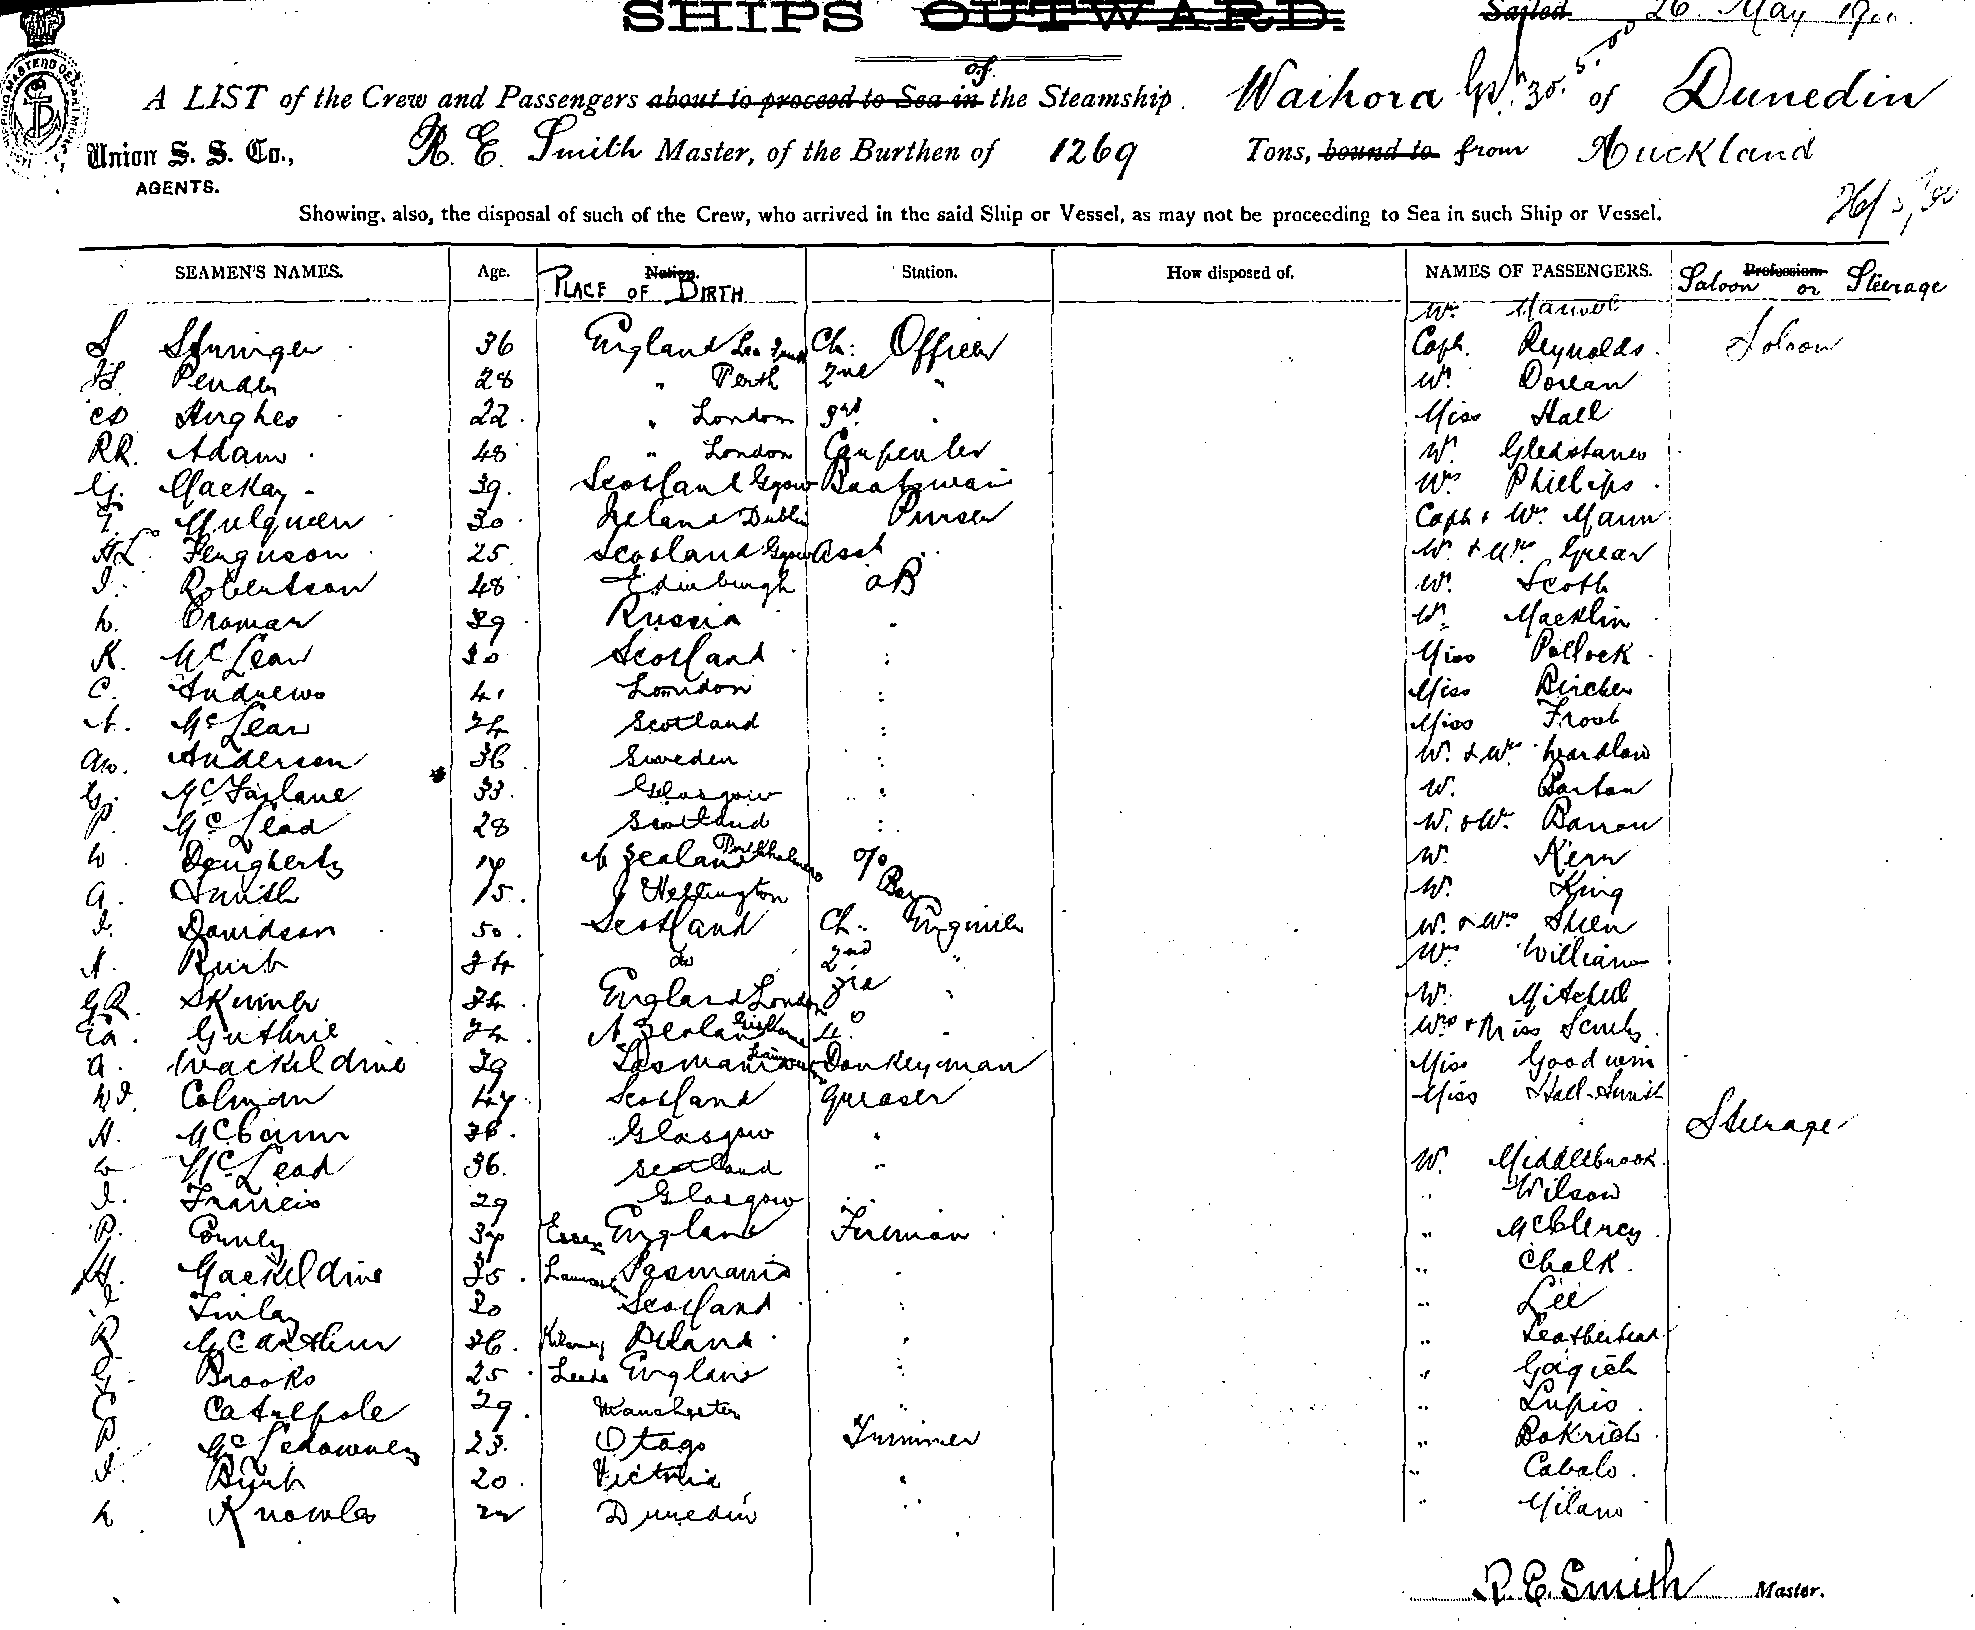 SHIPS OUTWARD.
Sailed 26 May 1900
of
A LIST of the Crew and Passengers about to proceed to Sea in the Steamship. Waihora of Dunedin
Union S. S. Co., R. E. Smith Master, of the Burthen of 1269 Tons, bound to from Auckland
AGENTS.
Showing, also, the disposal of such of the Crew, who arrived in the said Ship or Vessel, as may not be proceeding to Sea in such Ship or Vessel.
SEAMEN'S NAMES. Age. Nation. Station. How disposed of. NAMES OF PASSENGERS. Profession
PLACE OF BIRTH Saloon or Steerage
S Stringer 36 England Ch: Officer Capt. Reynolds Saloon
H. Pender 28 " Perth 2nd " Mr. Dorean
Hughes 22 " London 3rd " Miss Hall
RR. Adams 48 " London Carpenter Mr. Gledstanes
G. Mackay 39 Scotland Boatswain Phillips
T. Mulqueen 30 Ireland Dublin Purser Capt & Mrs. Mann
Ferguson 25 Scotland Asst Mr. & Mrs Grear
Robertson 48 Edinburgh AB Mr. Scott
39 Russia " Macklin
K. McLean 30 Scotland " Miss Pollock
C. Andrews 41 London " Miss Bircher
A. McLean 34 Scotland " Miss Frost
AW. Anderson 36 Sweden " Mr. & Mrs Wardlaw
G. McFarlane 33 Glasgow " Mr. Barton
P. McLeod 28 Scotland " Mr. & Mrs. Barron
W. Dougherty 17 N Zealand Port Chalmers O/S Mr. Kern
A. Smith 15 Wellington Boy Mr. King
J. Davidson 50 Scotland Ch: Engineer Mr. & Mrs Steen
34 do 2nd " Williams
GR. Skinner 34 England London 3rd " Mr. Mitchell
Guthrie 24 N Zealand 4th " Mrs & Miss
A. Mackeldine 39 Tasmania Donkeyman Miss Goodwin
Colman 47 Scotland Greaser Miss Hall-Smith
Steerage
A. McCann 36 Glasgow " Mr. Middlebrook
McLeod 36 Scotland " " Wilson
J. Francis 29 Glasgow "
P. 37 Essex England Fireman " McClercy
H. Mackeldine 35 Tasmania " " Chalk
Finlay 30 Scotland " " Lee
R McArthur 36 Ireland " " Leatherhead
G. Brooks 25 Leeds England " " Gagich
C Catchpole 29 Manchester " " Lupis
P. 23 Otago Trimmer " Bokrich
J. 20 Victoria " " Cabalo
Knowles 22 Dunedin " " Milano
R. E. Smith Master.